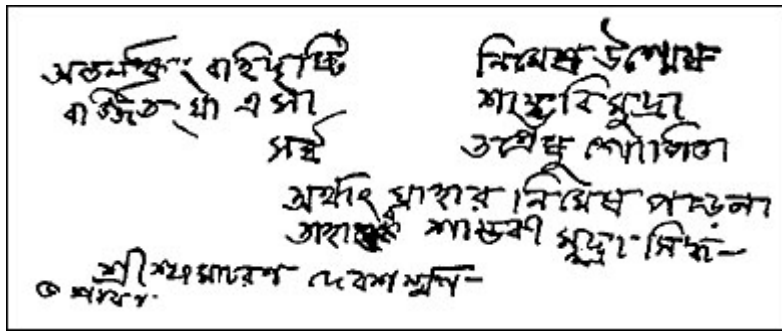 অন্তর্লক্ষ্যং বহির্দৃষ্টি নিমেষ উন্মেষ
বর্জিত এসা শাম্ভবি মুদ্রা
সর্ব্ব তন্ত্রেষু গোপিতা
অর্থাৎ যাহার নিমেষ পড়েনা
তাহার শাম্ভবী মুদ্রা সিদ্ধ—
শ্রীশ্যামাচরণ দেবশর্ম্মণ—